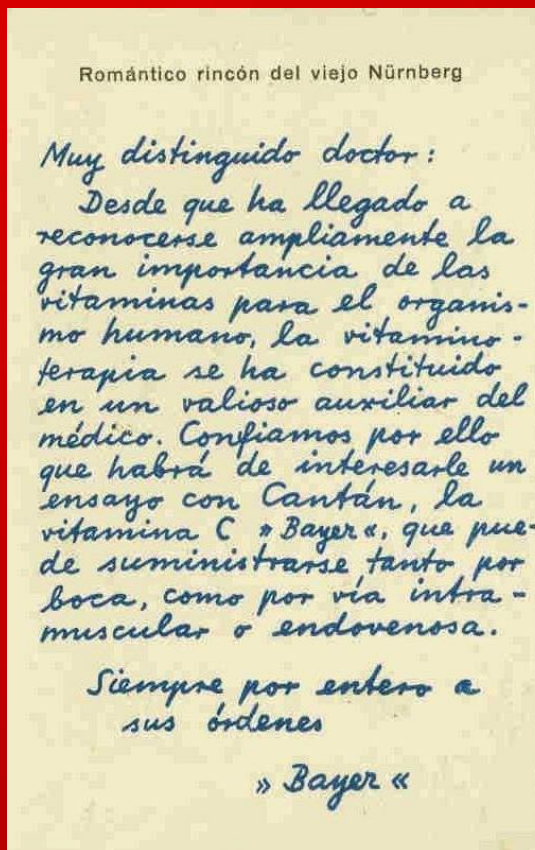 Romántico rincón del viejo Nürnberg
Muy distinguido doctor:
Desde que ha llegado a
reconocerse ampliamente la
gran importancia de las
vitaminas para el organis-
mo humano, la vitamino-
terapia se ha constituido
en un valioso auxiliar del
médico. Confiamos por ello
que habrá de interesarle un
ensayo con Cantán, la
vitamina C »Bayer«, que pue-
de suministrarse tanto por
boca, como por vía intra-
muscular o endovenosa.
Siempre por entero a
sus órdenes
»Bayer«